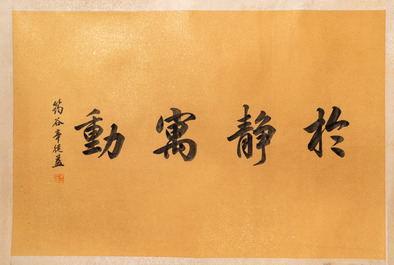 於靜寓動
筠谷章從益